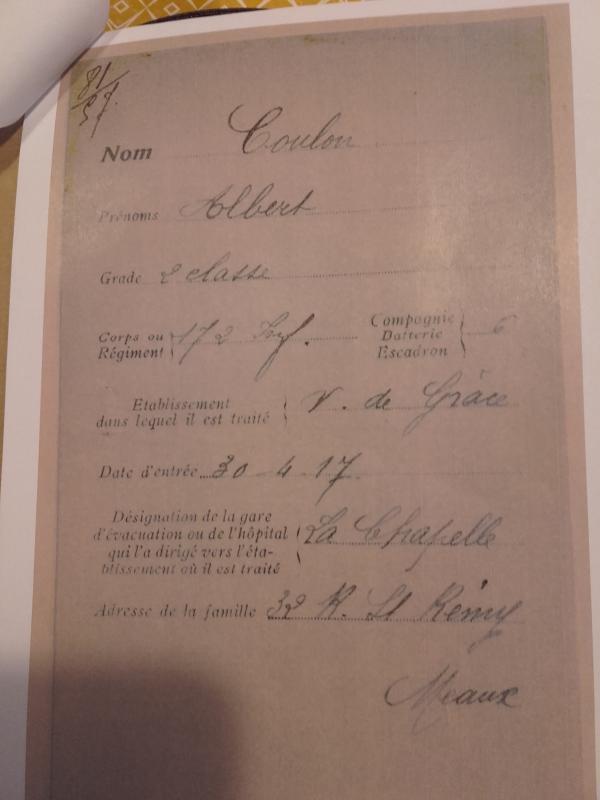 81
57.
Nom Coulon
Prénoms Albert
Grade 2 classe
Corps ou Régiment 172 Inf. Compagnie Batterie Escadron 6
Etablissement dans lequel il est traité V. de Grâce
Date d'entrée 30-4-17
Désignation de la gare d'évacuation ou de l'hôpital qui l'a dirigé vers l'éta-blissement où il est traité La Chapelle
Adresse de la famille 32 R. St Rémy
Meaux